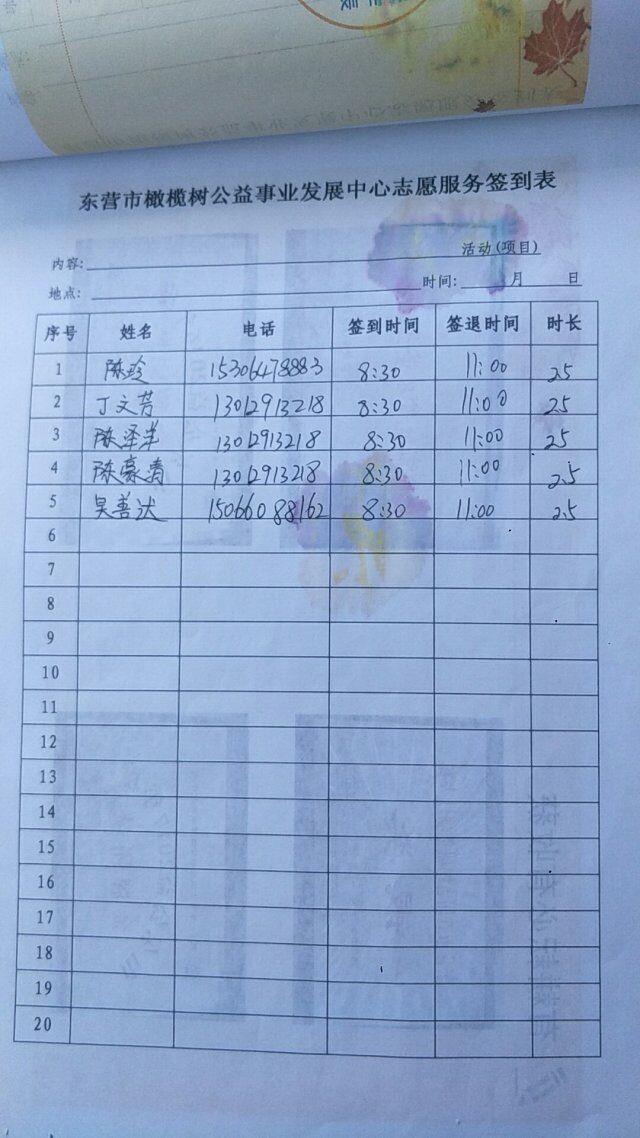 东营市橄榄树公益事业发展中心志愿服务签到表
内容: 活动(项目)
地点: 时间: 月 日
序号 姓名 电话 签到时间 签退时间 时长
1 陈玲 15306478883 8:30 11:00 2.5
2 丁文芳 13012913218 8:30 11:00 2.5
3 陈泽羊 13012913218 8:30 11:00 2.5
4 陈豪青 13012913218 8:30 11:00 2.5
5 吴善达 15066088162 8:30 11:00 2.5
6
7
8
9
10
11
12
13
14
15
16
17
18
19
20